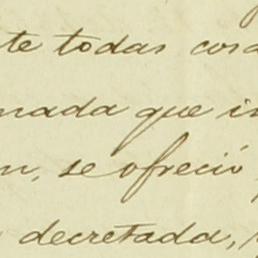 te todas cosa
nada que in
n, se ofreció
decretada,